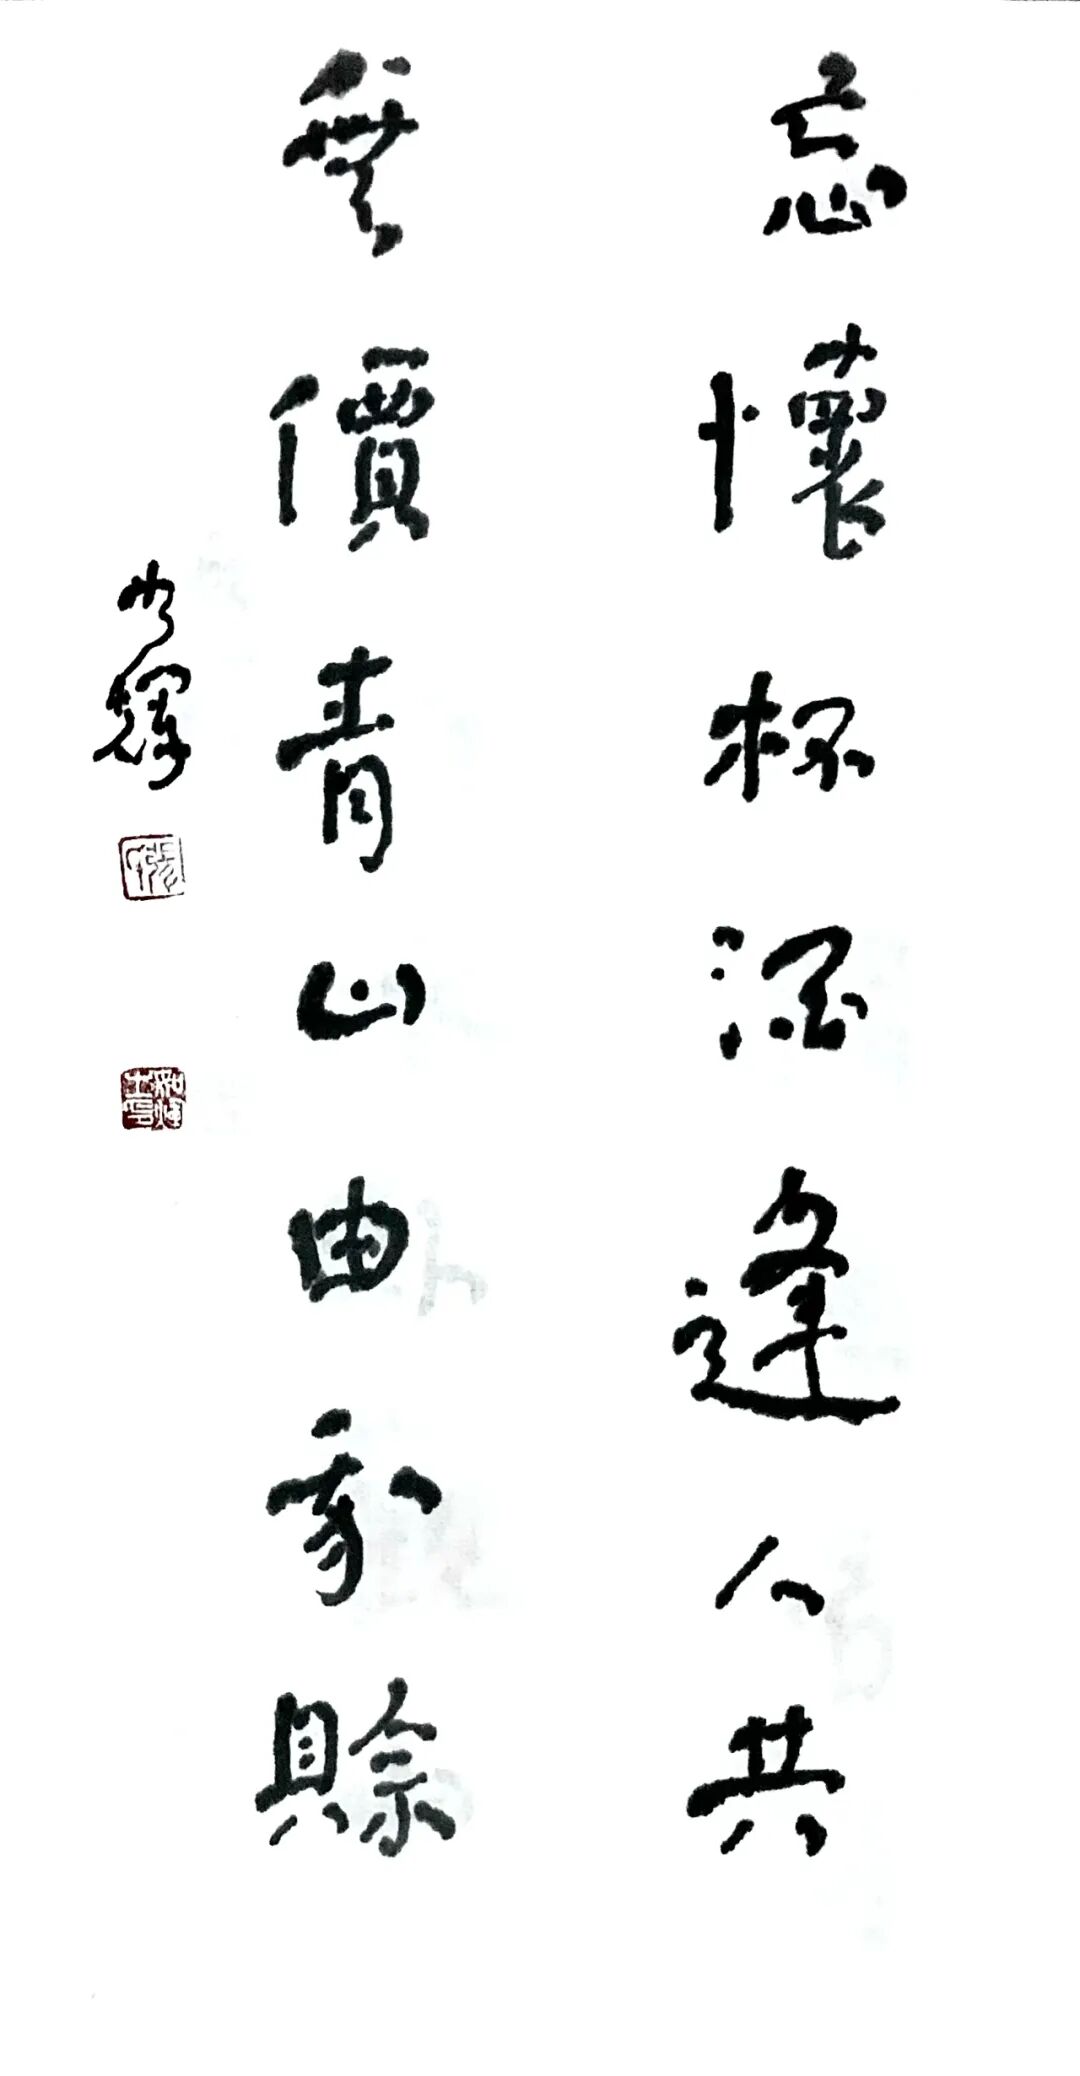 忘懷杯酒逢人共
無價青山由我賒
如輝